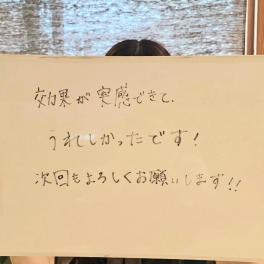 効果が実感できて、
うれしかったです!
次回もよろしくお願いします!!